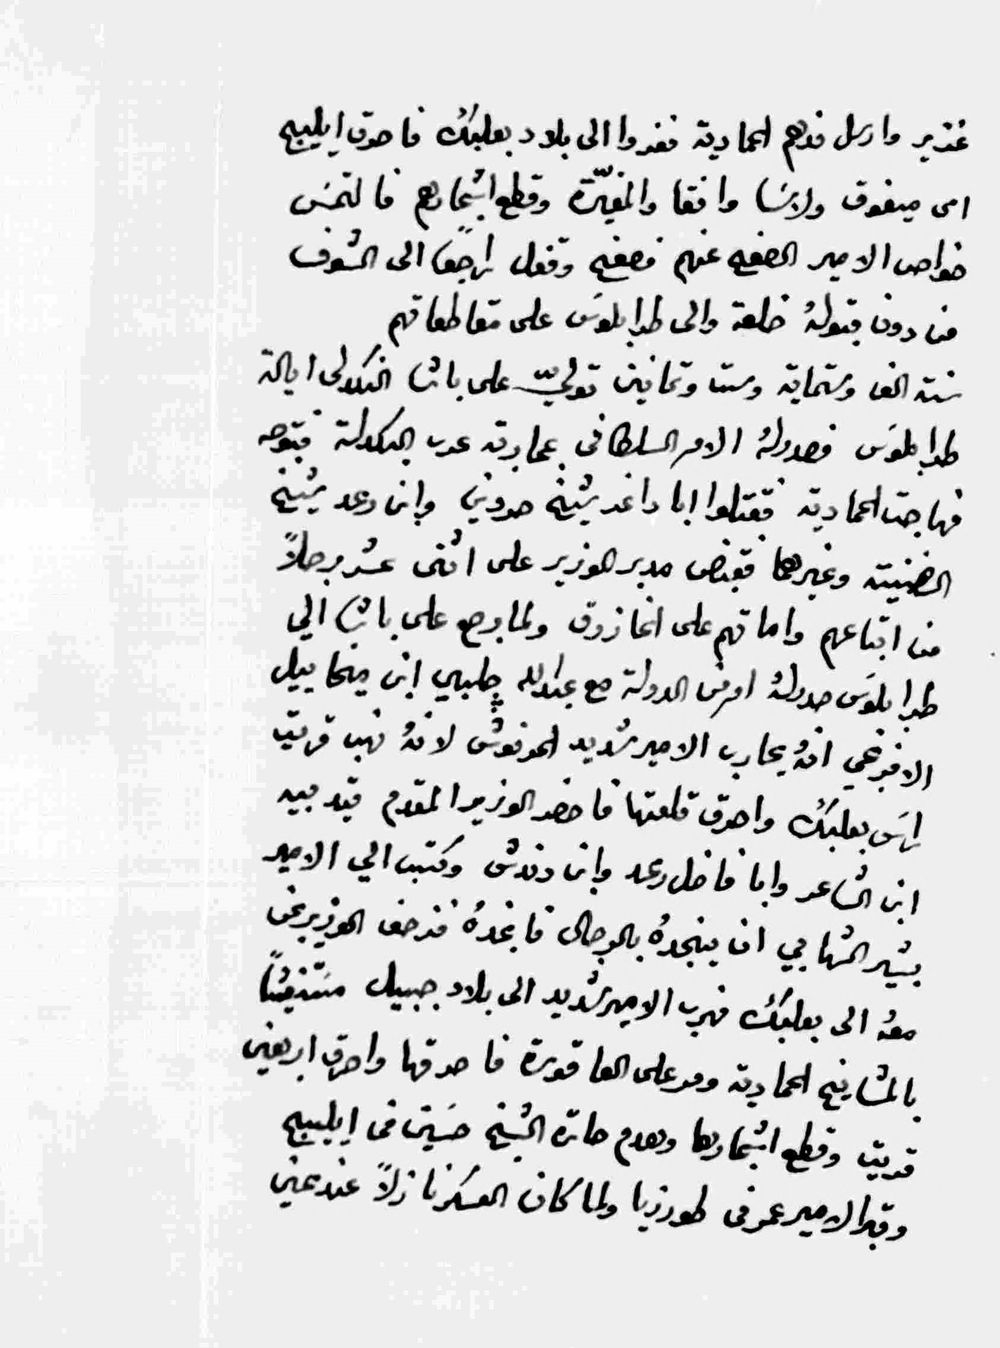 غزير وارسل قدهم الحمادية ففروا الى بلاد بعلبك فاحرق ايليج
امى ميفوق ولاسا وافقا والمغيّرة وقطع اشجارهم فالتمس
خواص الامير الصفح عنهم فصفح وقفل راجعًا الى الشوف
من دون قبوله خلعة والى طرابلوس على مقاطعاتهم
سنة الف وستماية وست وثمانين تولىّ على باشا النكدلى ايالة
طرابلوس فصدر لهُ الامر السلطانى بمحاربة عرب البكدلة فتوجه
فهاجت الحمادية فقتلوا ابا داغر شيخ حردين وابن رعد شيخ
الضنية وغيرهما فقبض مدبر الوزير على اثنى عشر رجلاً
من اتباعهم واماتهم على الخازوق ولما رجع على باشا الي
طرابلوس صدر لهُ اوامر من الدولة مع عبدالله جلبي ابن ميخاييل
الافرنجي انهُ يحارب الامير شديد الحرفوش لانهُ نهب قرية
راس بعلبك واحرق قلعتها فاحضر الوزير المقدم قيدبيه
ابن الشاعر وابا فاضل رعد وابن دندش وكتب الي الامير
بشير الشهابي ان ينجدهُ بالرجال فانجدهُ فزحف الوزير بمن
معهُ الى بعلبك فهرب الامير شديد الى بلاد جبيل مستغيثًا
بالمشايخ الحمادية ومر على العاقورة فاحرقها واحرق اربعين
قرية وقطع اشجارها وهدم حارة الشيخ حسين فى ايليج
وقبر الامير عمر فى طورزيا ولما كان العسكر نازلاً عند عين